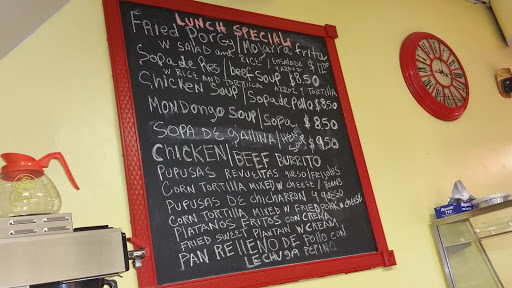 LUNCH SPECIAL
Fried Porgy/Mojarra frita
W SALAD and RICE / Ensalada
Sopa de Res/beef Soup $8.50
W RICE AND TORTILLA ARROZ Y TORTILLA
Chicken Soup/Sopa de Pollo $8.50
MONDONGO SOUP/SOPA $8.50
SOPA DE GALLINA/HEN SOUP $9.50
CHICKEN/BEEF BURRITO
PUPUSAS REVUELTAS QUESO/FRIJOLES
CORN TORTILLA MIXED W CHEESE/BEANS
PUPUSAS DE CHICHARRON Y QUESO
CORN TORTILLA MIXED W FRIED PORK W CHEESE
PLATANOS FRITOS CON CREMA
FRIED SWEET PLANTAIN W CREAM
PAN RELLENO DE POLLO CON
LECHUGA PEPINO